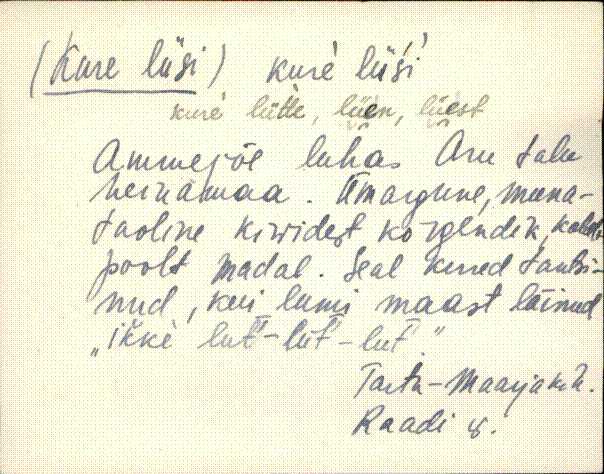 (Kure lüsi) kuŕe lüśi
kuŕe lütte, lüen, lüest
Ammejõe luhas Aru talu
heinamaa. Ümargune, muna-
taoline kividest kõrgendik,
poolt madal. Seal kured tantsi-
nud, kui lumi maast läinud
„ikke lut-lut-lut."
Tartu-Maarja kih.
Raadi v.